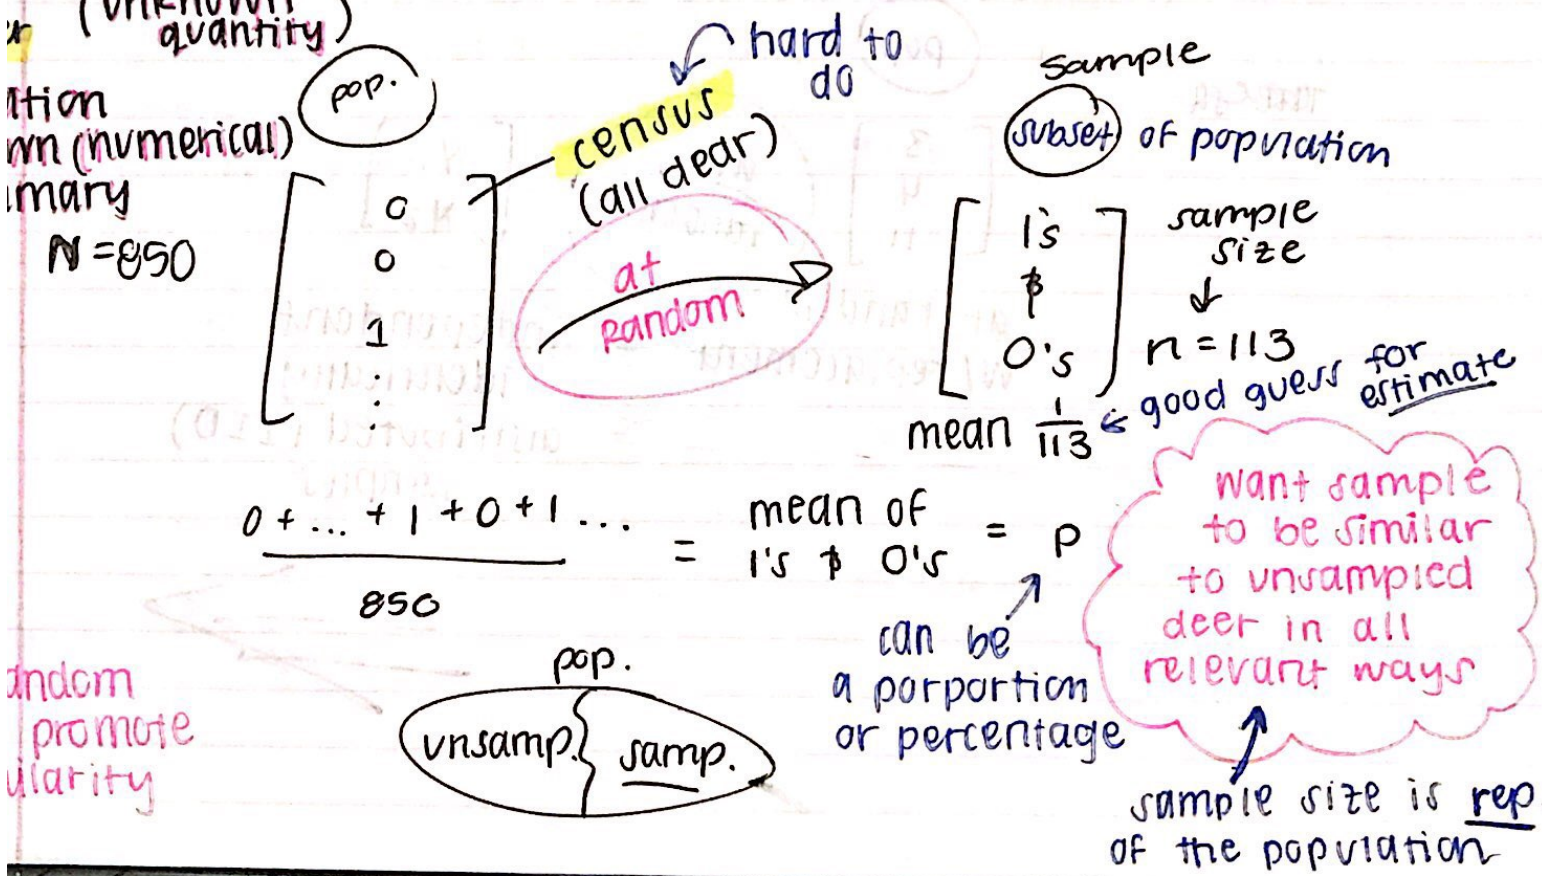 (unknown
quantity)
pop.
(numerical)
N = 850
[ 0
0
1
:
. ]
census
(all dear)
hard to
do
at
random
sample
subset of population
[ 1's
&
0's ]
sample
size
↓
n = 113
mean 1/113 ← good guess for
estimate
0 + ... + 1 + 0 + 1 ...
850
= mean of
1's & 0's
= p
can be
a porportion
or percentage
want sample
to be similar
to unsampled
deer in all
relevant ways
sample size is rep
of the population
pop.
unsamp. samp.
promote